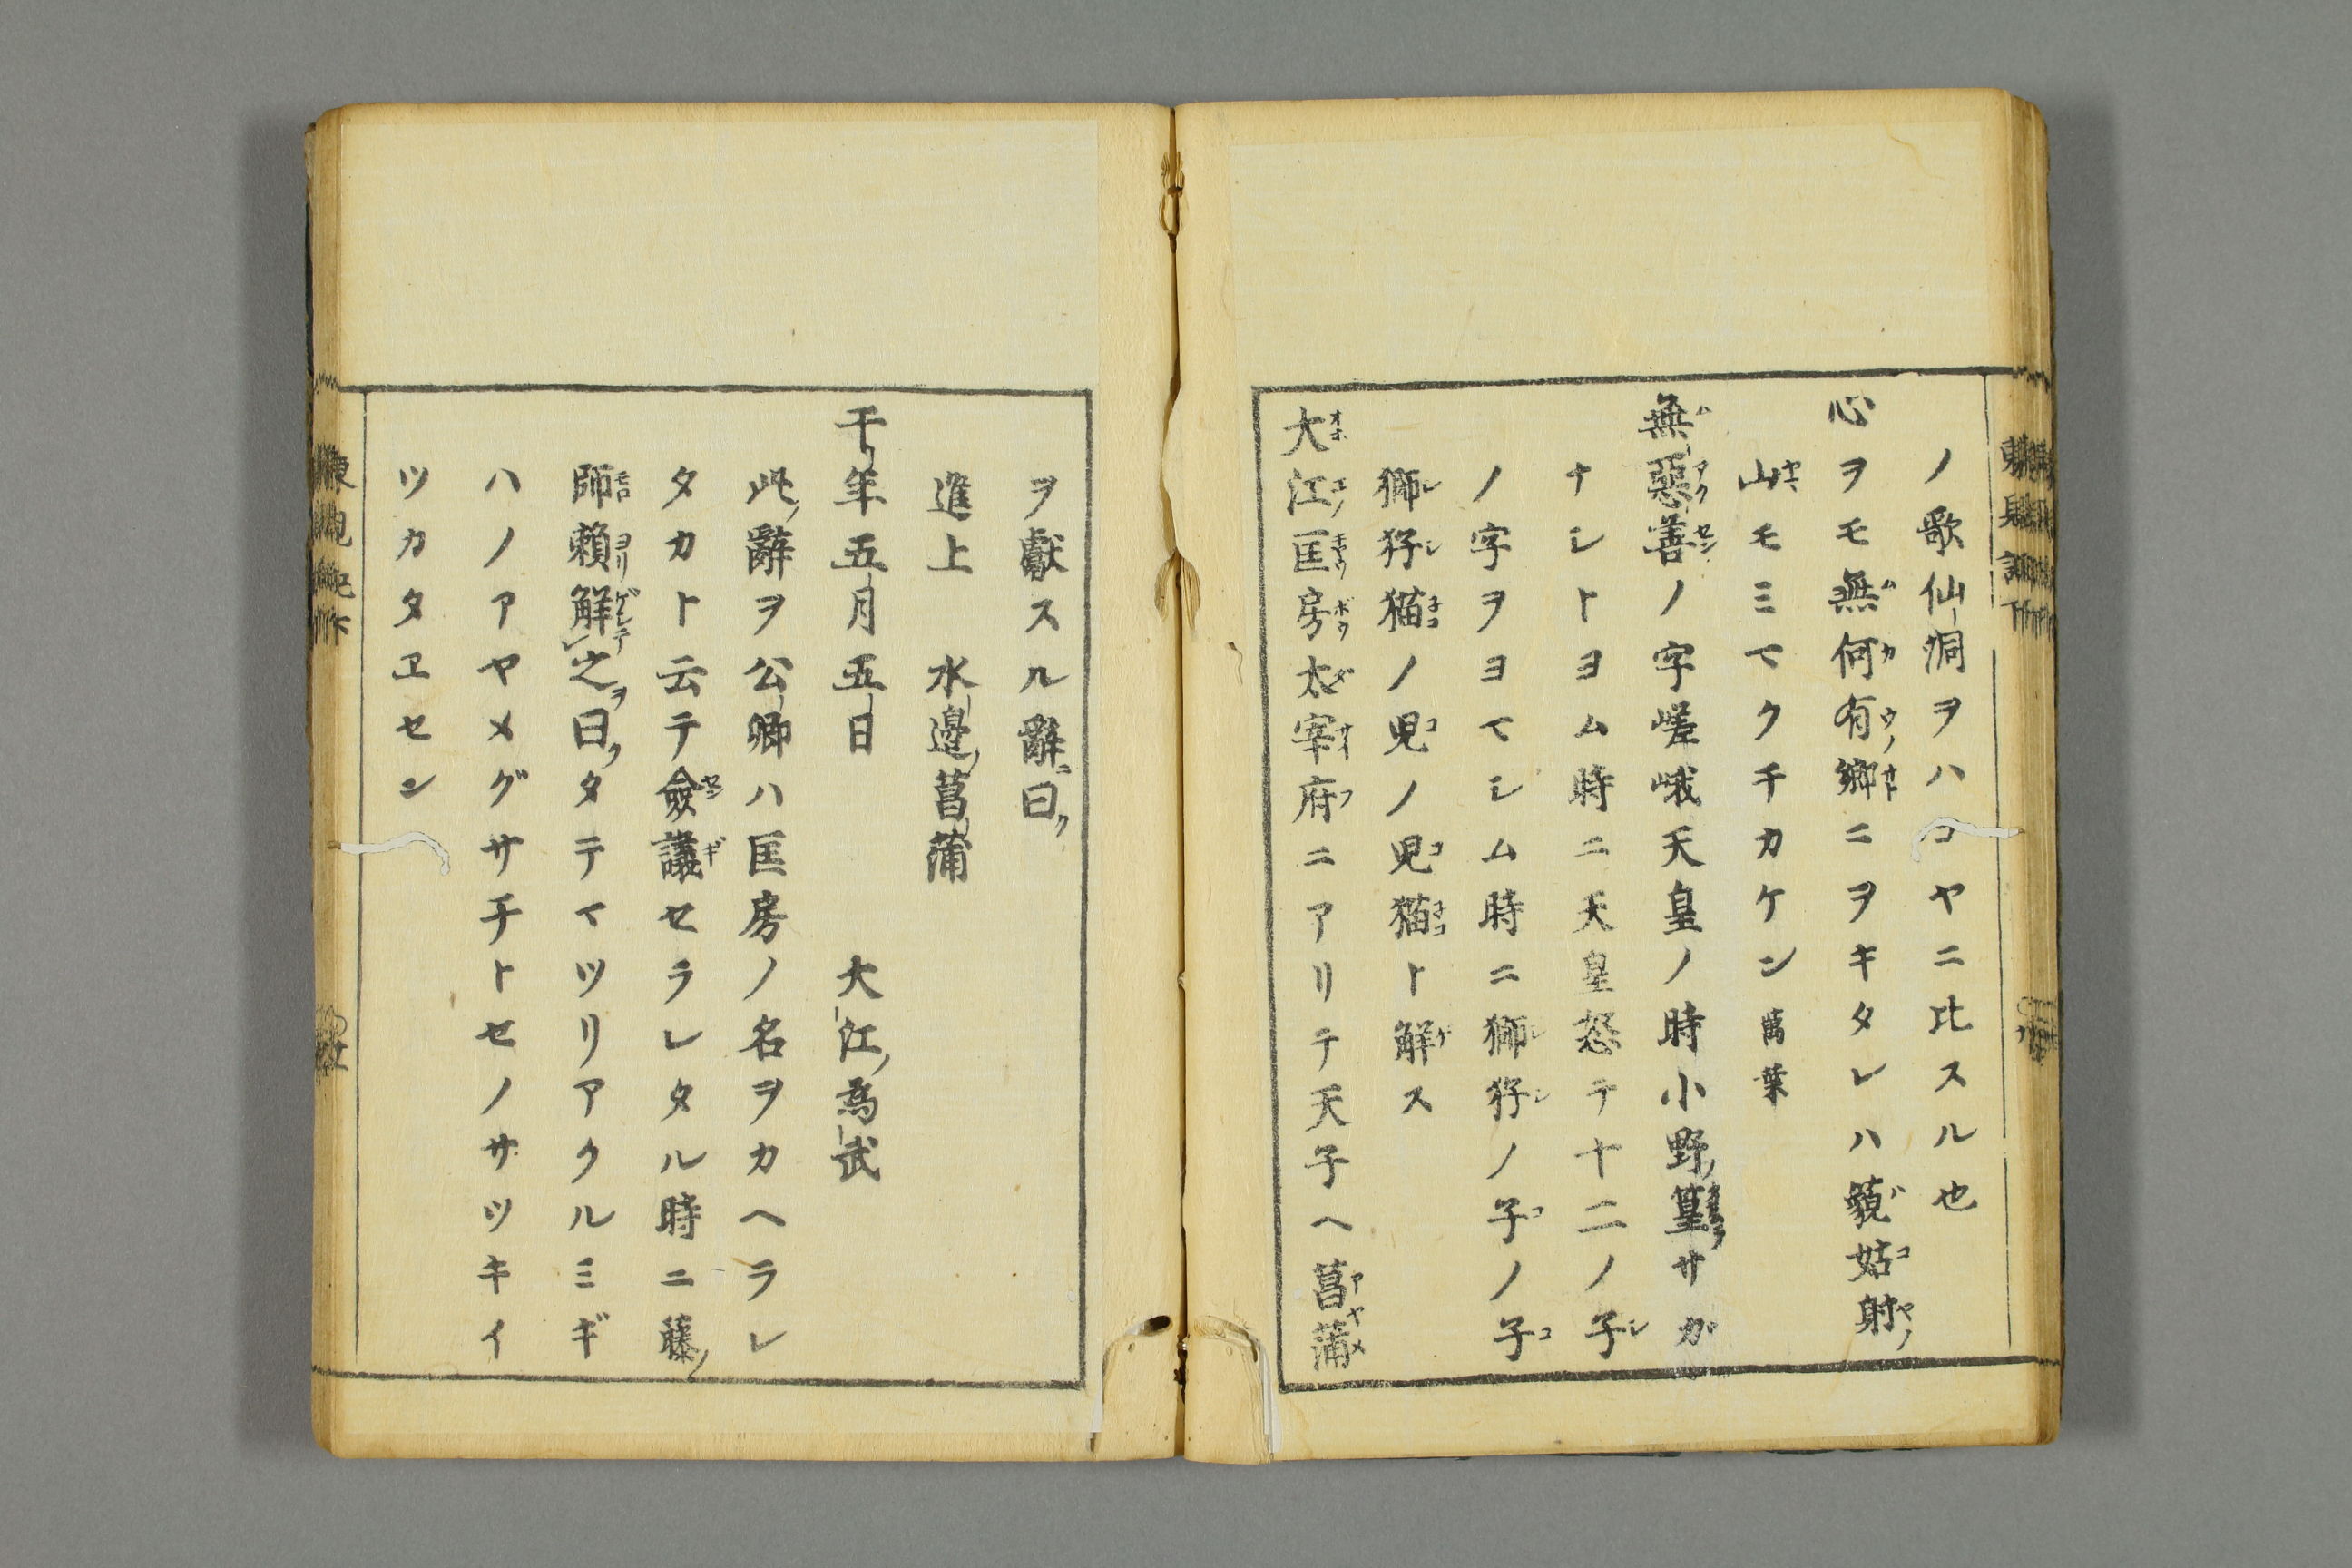 ノ歌仙洞ヲハコヤニ比スル也
心ヲモ無何有郷ニヲキタレハ藐姑射
山モミマクチカケン萬葉
無惡善ノ字嵯峨天皇ノ時小野篁サガ
ナシトヨム時ニ天皇怒テ十二ノ子
ノ字ヲヨマシム時ニ獅㹀ノ子ノ子
獅㹀猫ノ児ノ児猫ト解ス
大江匡房太宰府ニアリテ天子ヘ菖蒲
ヲ獻スル辭ニ曰ク
進上 水邉ノ菖蒲
千年五月五日 大江ノ為武
此ノ辭ヲ公卿ハ匡房ノ名ヲカヘラレ
タカト云テ僉議セラレタル時ニ藤ノ
師頼解之ヲ曰クタテマツリアクルミギ
ハノアヤメグサチトセノサツキイ
ツカタヱセン